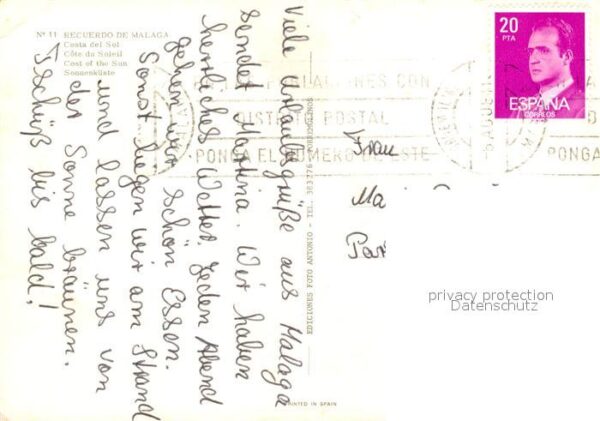 Nº 11 RECUERDO DE MALAGA
Costa del Sol
Côte du Soleil
Cost of the Sun
Sonnenküste
Viele Urlaubsgrüße aus Malaga
sendet Martina. Wir haben
herrliches Wetter. Jeden Abend
gehen wir schön Essen.
Sonst liegen wir am Strand
und lassen uns von
der Sonne bräunen.
Tschüß bis bald!
EDICIONES FOTO ANTONIO - TEL.
PRINTED IN SPAIN
20
PTA
ESPAÑA
CORREOS
POBLACIONES CON
DISTRITO POSTAL
PONGA EL NUMERO DE ESTE
PONGA
Frau
Ma
privacy protection
Datenschutz